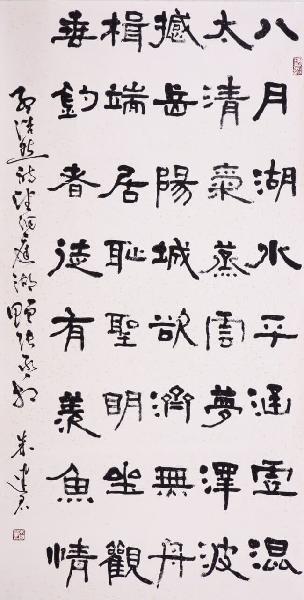 八月湖水平涵虛混
太清氣蒸雲夢澤波
撼岳陽城欲濟無舟
楫端居恥聖明坐觀
垂釣者徒有羨魚情
孟浩然詩望洞庭湖贈張丞相